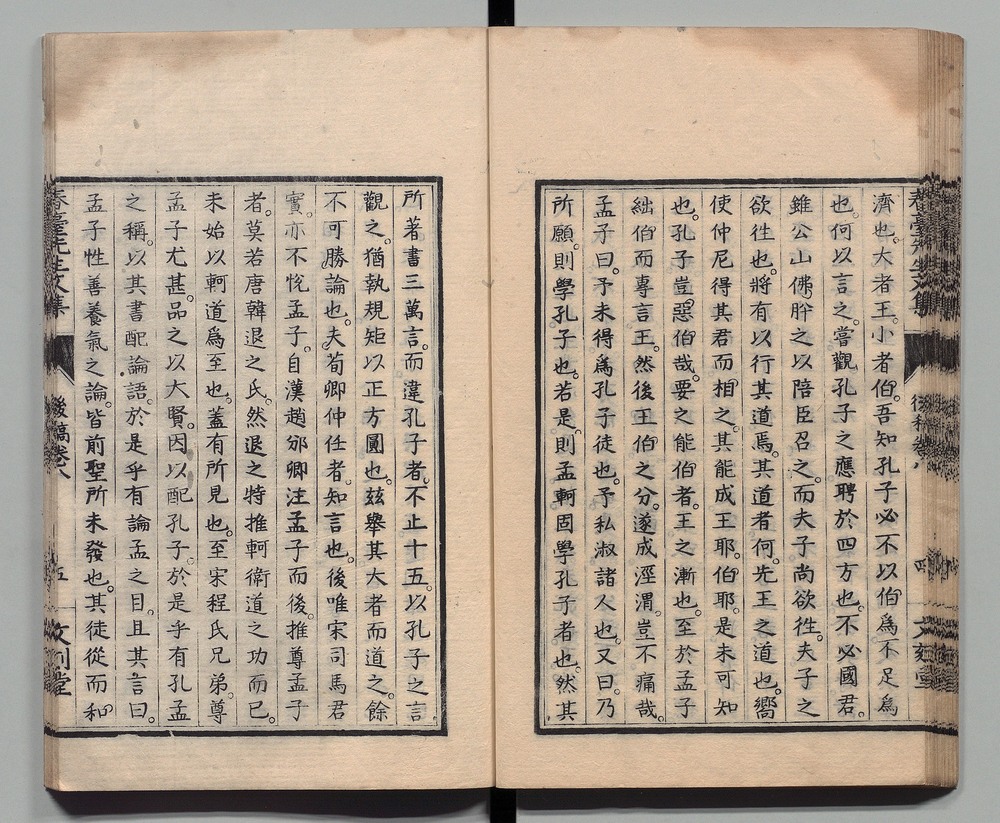 濟也。大者王。小者伯。吾知孔子必不以伯爲不足爲
也。何以言之。嘗觀孔子之應聘於四方也。不必國君。
雖公山佛肸之以陪臣召之。而夫子尚欲徃。夫子之
欲徃也。將有以行其道焉。其道者何。先王之道也。嚮
使仲尼得其君而相之。其能成王耶。伯耶。是未可知
也。孔子豈惡伯哉。要之能伯者。王之漸也。至於孟子
絀伯而專言王。然後王伯之分。遂成涇渭。豈不痛哉。
孟子曰。予未得爲孔子徒也。予私淑諸人也。又曰。乃
所願則學孔子也。若是。則孟軻固學孔子者也。然其
所著書三萬言。而違孔子者。不止十五。以孔子之言
觀之。猶執規矩以正方圓也。玆舉其大者而道之。餘
不可勝論也。夫荀卿仲任者。知言也。後唯宋司馬君
實。亦不悅孟子。自漢趙邠卿注孟子而後。推尊孟子
者。莫若唐韓退之氏。然退之特推軻衛道之功而已。
未始以軻道爲至也。蓋有所見也。至宋程氏兄弟。尊
孟子尤甚。品之以大賢。因以配孔子。於是乎有孔孟
之稱。以其書配論語。於是乎有論孟之目。且其言曰。
孟子性善養氣之論。皆前聖所未發也。其徒從而和
春臺先生文集
後稿卷八
五
文刻堂